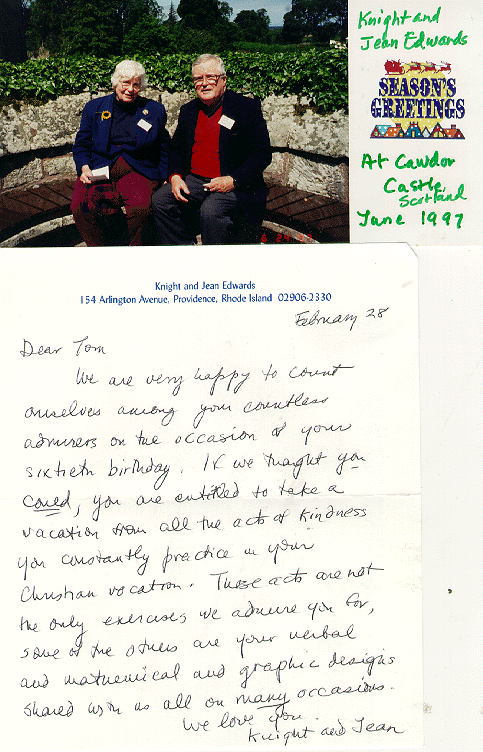 Knight and
Jean Edwards
SEASON'S
GREETINGS
At Cawdor
Castle,
Scotland
June 1997
Knight and Jean Edwards
154 Arlington Avenue, Providence, Rhode Island 02906-2330
February 28
Dear Tom
We are very happy to count
ourselves among your countless
admirers on the occasion of your
sixtieth birthday. If we thought you
could, you are entitled to take a
vacation from all the acts of kindness
you constantly practice in your
Christian vocation. These acts are not
the only exercises we admire you for,
some of the others are your verbal
and mathemical and graphic designs
shared with us all on many occasions.
We love you.
Knight and Jean